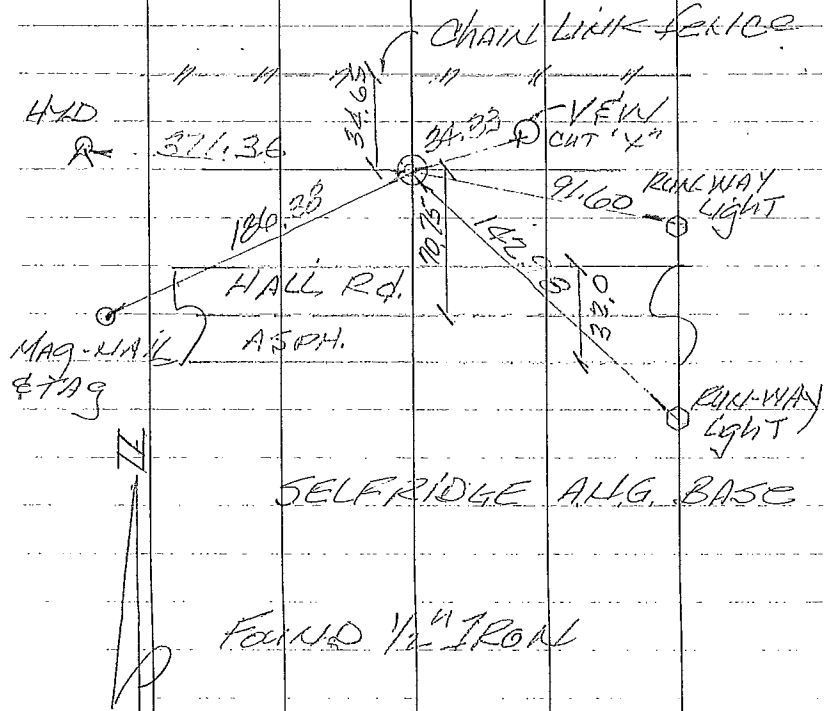 CHAIN LINK FENCE
34.65
HYD
371.36
34.33
VEW
CUT "X"
91.60
RUN-WAY
LIGHT
186.38
70.75
HALL Rd.
ASPH.
33.0
MAG-NAIL
& TAG
RUN-WAY
LIGHT
N
SELFRIDGE A.N.G. BASE
FOUND 1/2" IRON